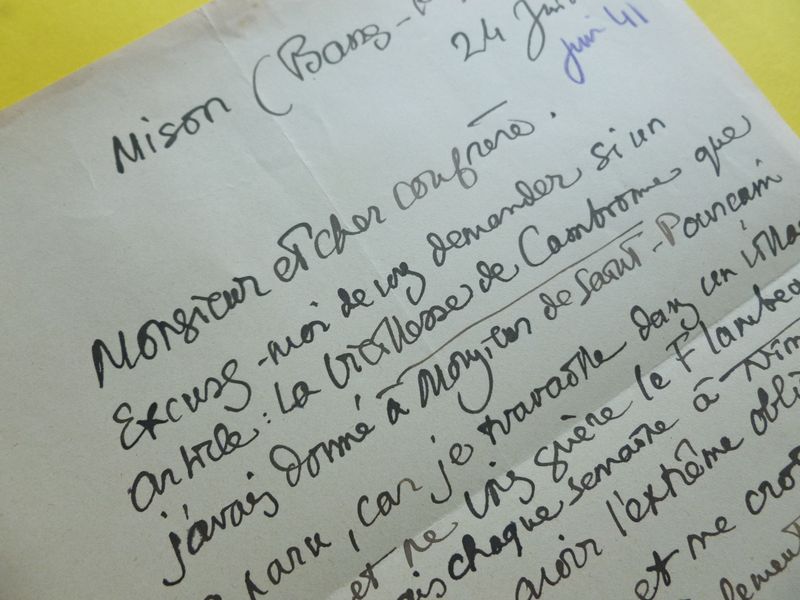 Mison (Bass-
24 Juin
Juin 41
Monsieur et cher confrère.
Excusez-moi de vous demander si un
article: La Vieillesse de Cambronne que
j'avais donné à Monsieur de Saint-Pourcain
paru, car je travaille dans un villa
et ne vois guère le Flambea
chaque semaine à
avoir l'extrême obli
et me croi